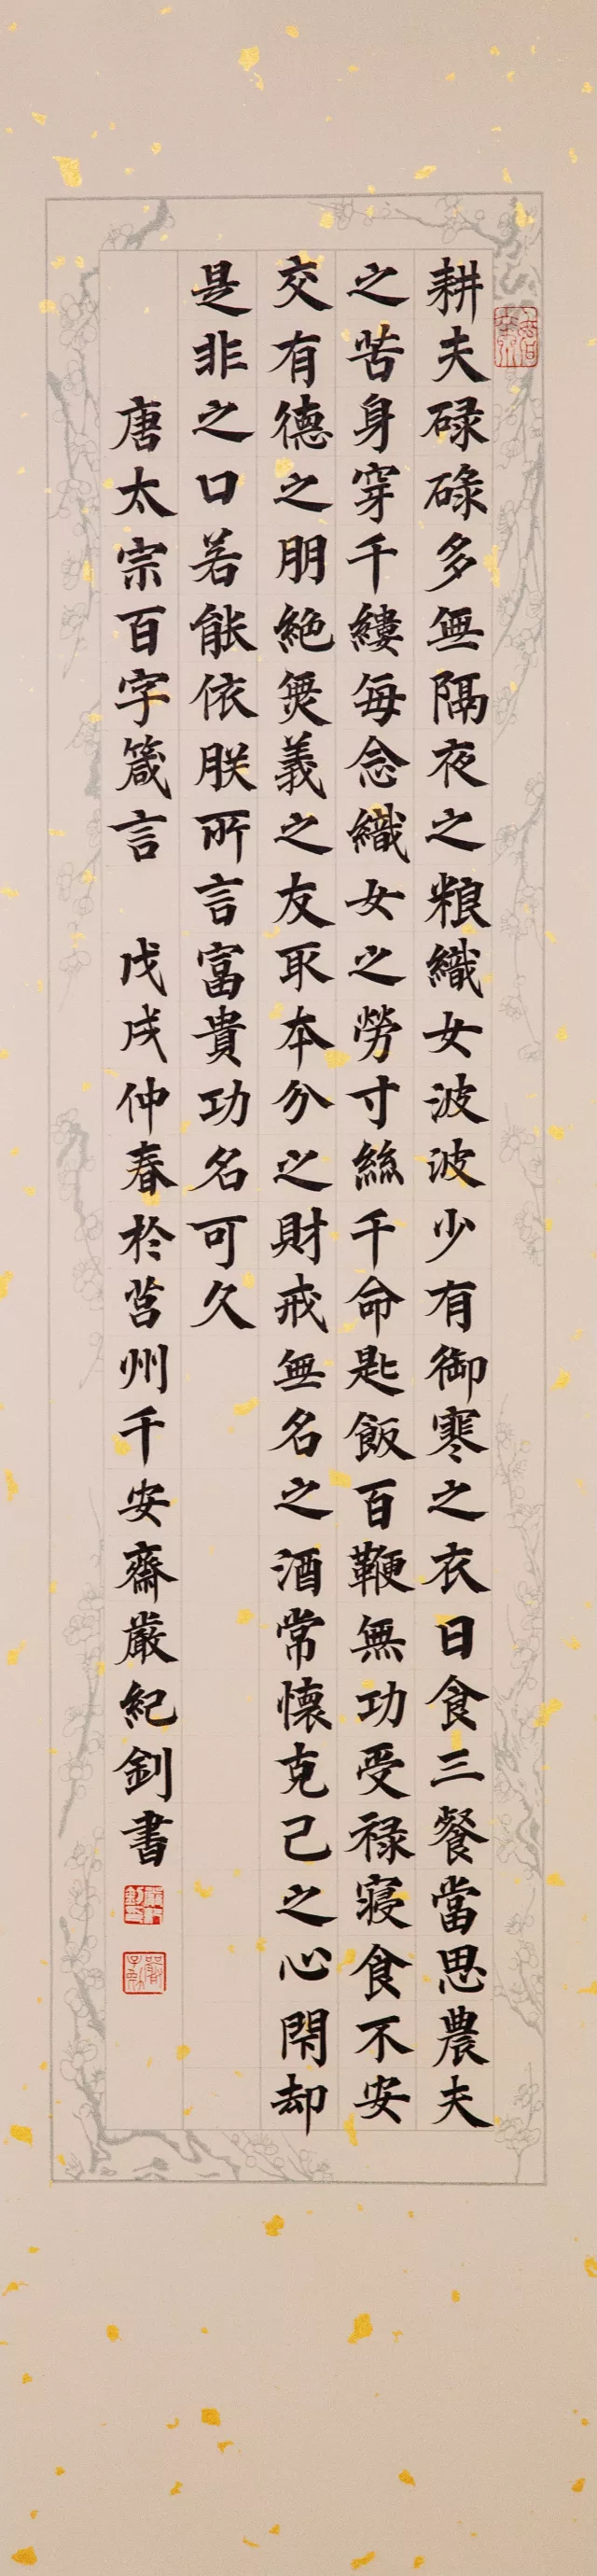 耕夫碌碌多無隔夜之粮織女波波少有御寒之衣日食三餐當思農夫
之苦身穿千縷每念織女之勞寸絲千命匙飯百鞭無功受禄寝食不安
交有德之朋絶無義之友取本分之財戒無名之酒常懷克己之心閑却
是非之口若能依朕所言富貴功名可久
唐太宗百字箴言 戊戌仲春於莒州千安齋嚴紀釗書